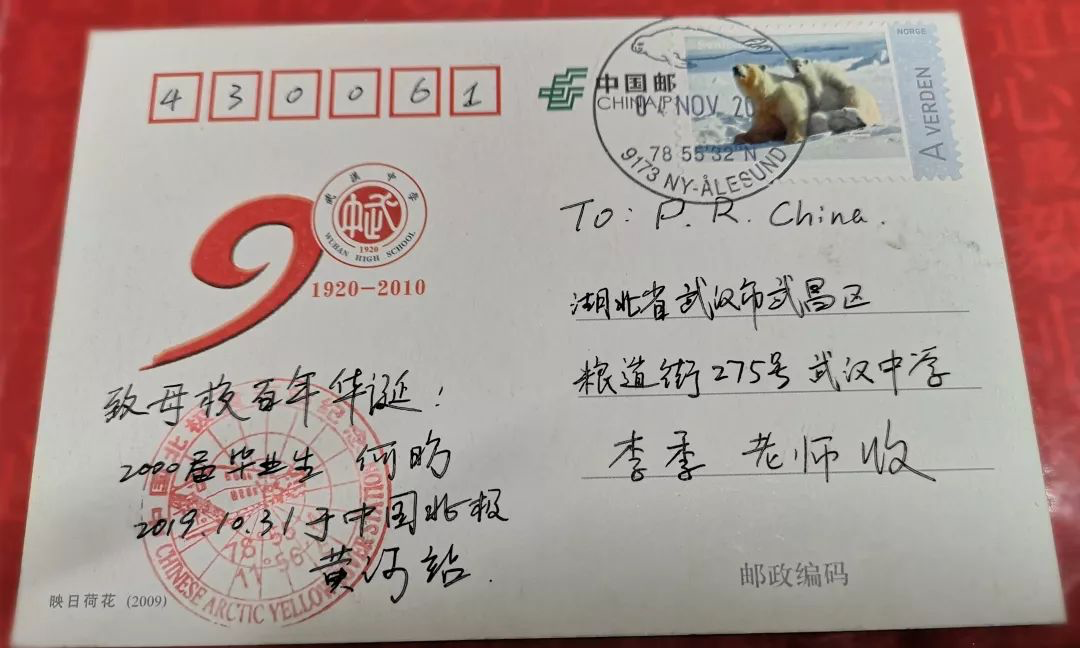 430061
中国邮
CHINA P
NORGE
A VERDEN
04 NOV 20
78 55'32"N
9173 NY-ÅLESUND
武漢中学
中武
1920
WUHAN HIGH SCHOOL
9
1920-2010
To: P. R. China.
湖北省武汉市武昌区
粮道街275号 武汉中学
李季 老师 收
致母校百年华诞:
2000届毕业生 何昉
2019.10.31于中国北极
黄河站.
CHINESE ARCTIC YELLOW RIVER STATION
邮政编码
映日荷花 (2009)